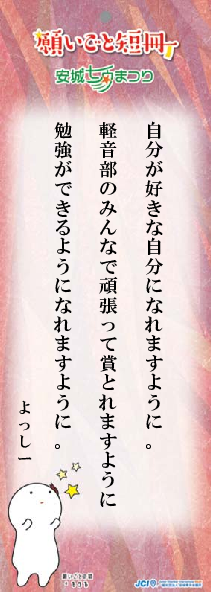 願いごと短冊
安城七夕まつり
自分が好きな自分になれますように。
軽音部のみんなで頑張って賞とれますように
勉強ができるようになれますように。
よっしー
願いごとの精
JCI